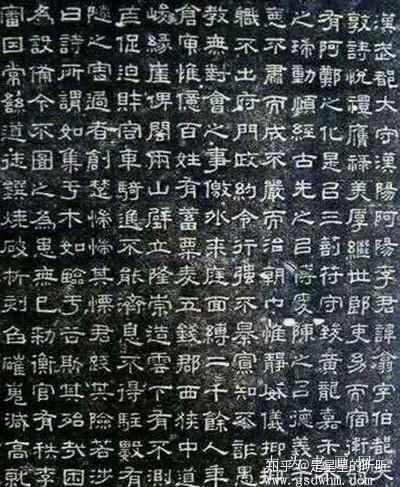 漢武都太守漢陽阿陽李君諱翕字伯都天
敦詩悅禮膺祿美厚繼世郎吏幼而宿衛
有阿鄭之化是以三剖符守致黃龍嘉禾
之瑞動順經古先之以博愛陳之以德義
惡不肅而成不嚴而治朝中惟靜威儀抑
職不出府門政約令行强不暴寡知不詐愚
教無對會之事徼外來庭面縛二千餘人年
倉庾惟億百姓有蓄粟麥五錢郡西狹中道
峻緣崖俾閣兩山壁立隆崇造雲下有不測
芒促迫財容車騎進不能濟息不得駐數有
隧之害過者創楚惴惴其慄君踐其險若涉
曰詩所謂如集于木如臨于谷斯其殆哉困
為設備今不圖之為患無已敕衡官有秩李
審因常繇道徒鐉燒破析刻臽確嵬減高就
知乎 @是星星的昕昕
www.gsdwhm.com